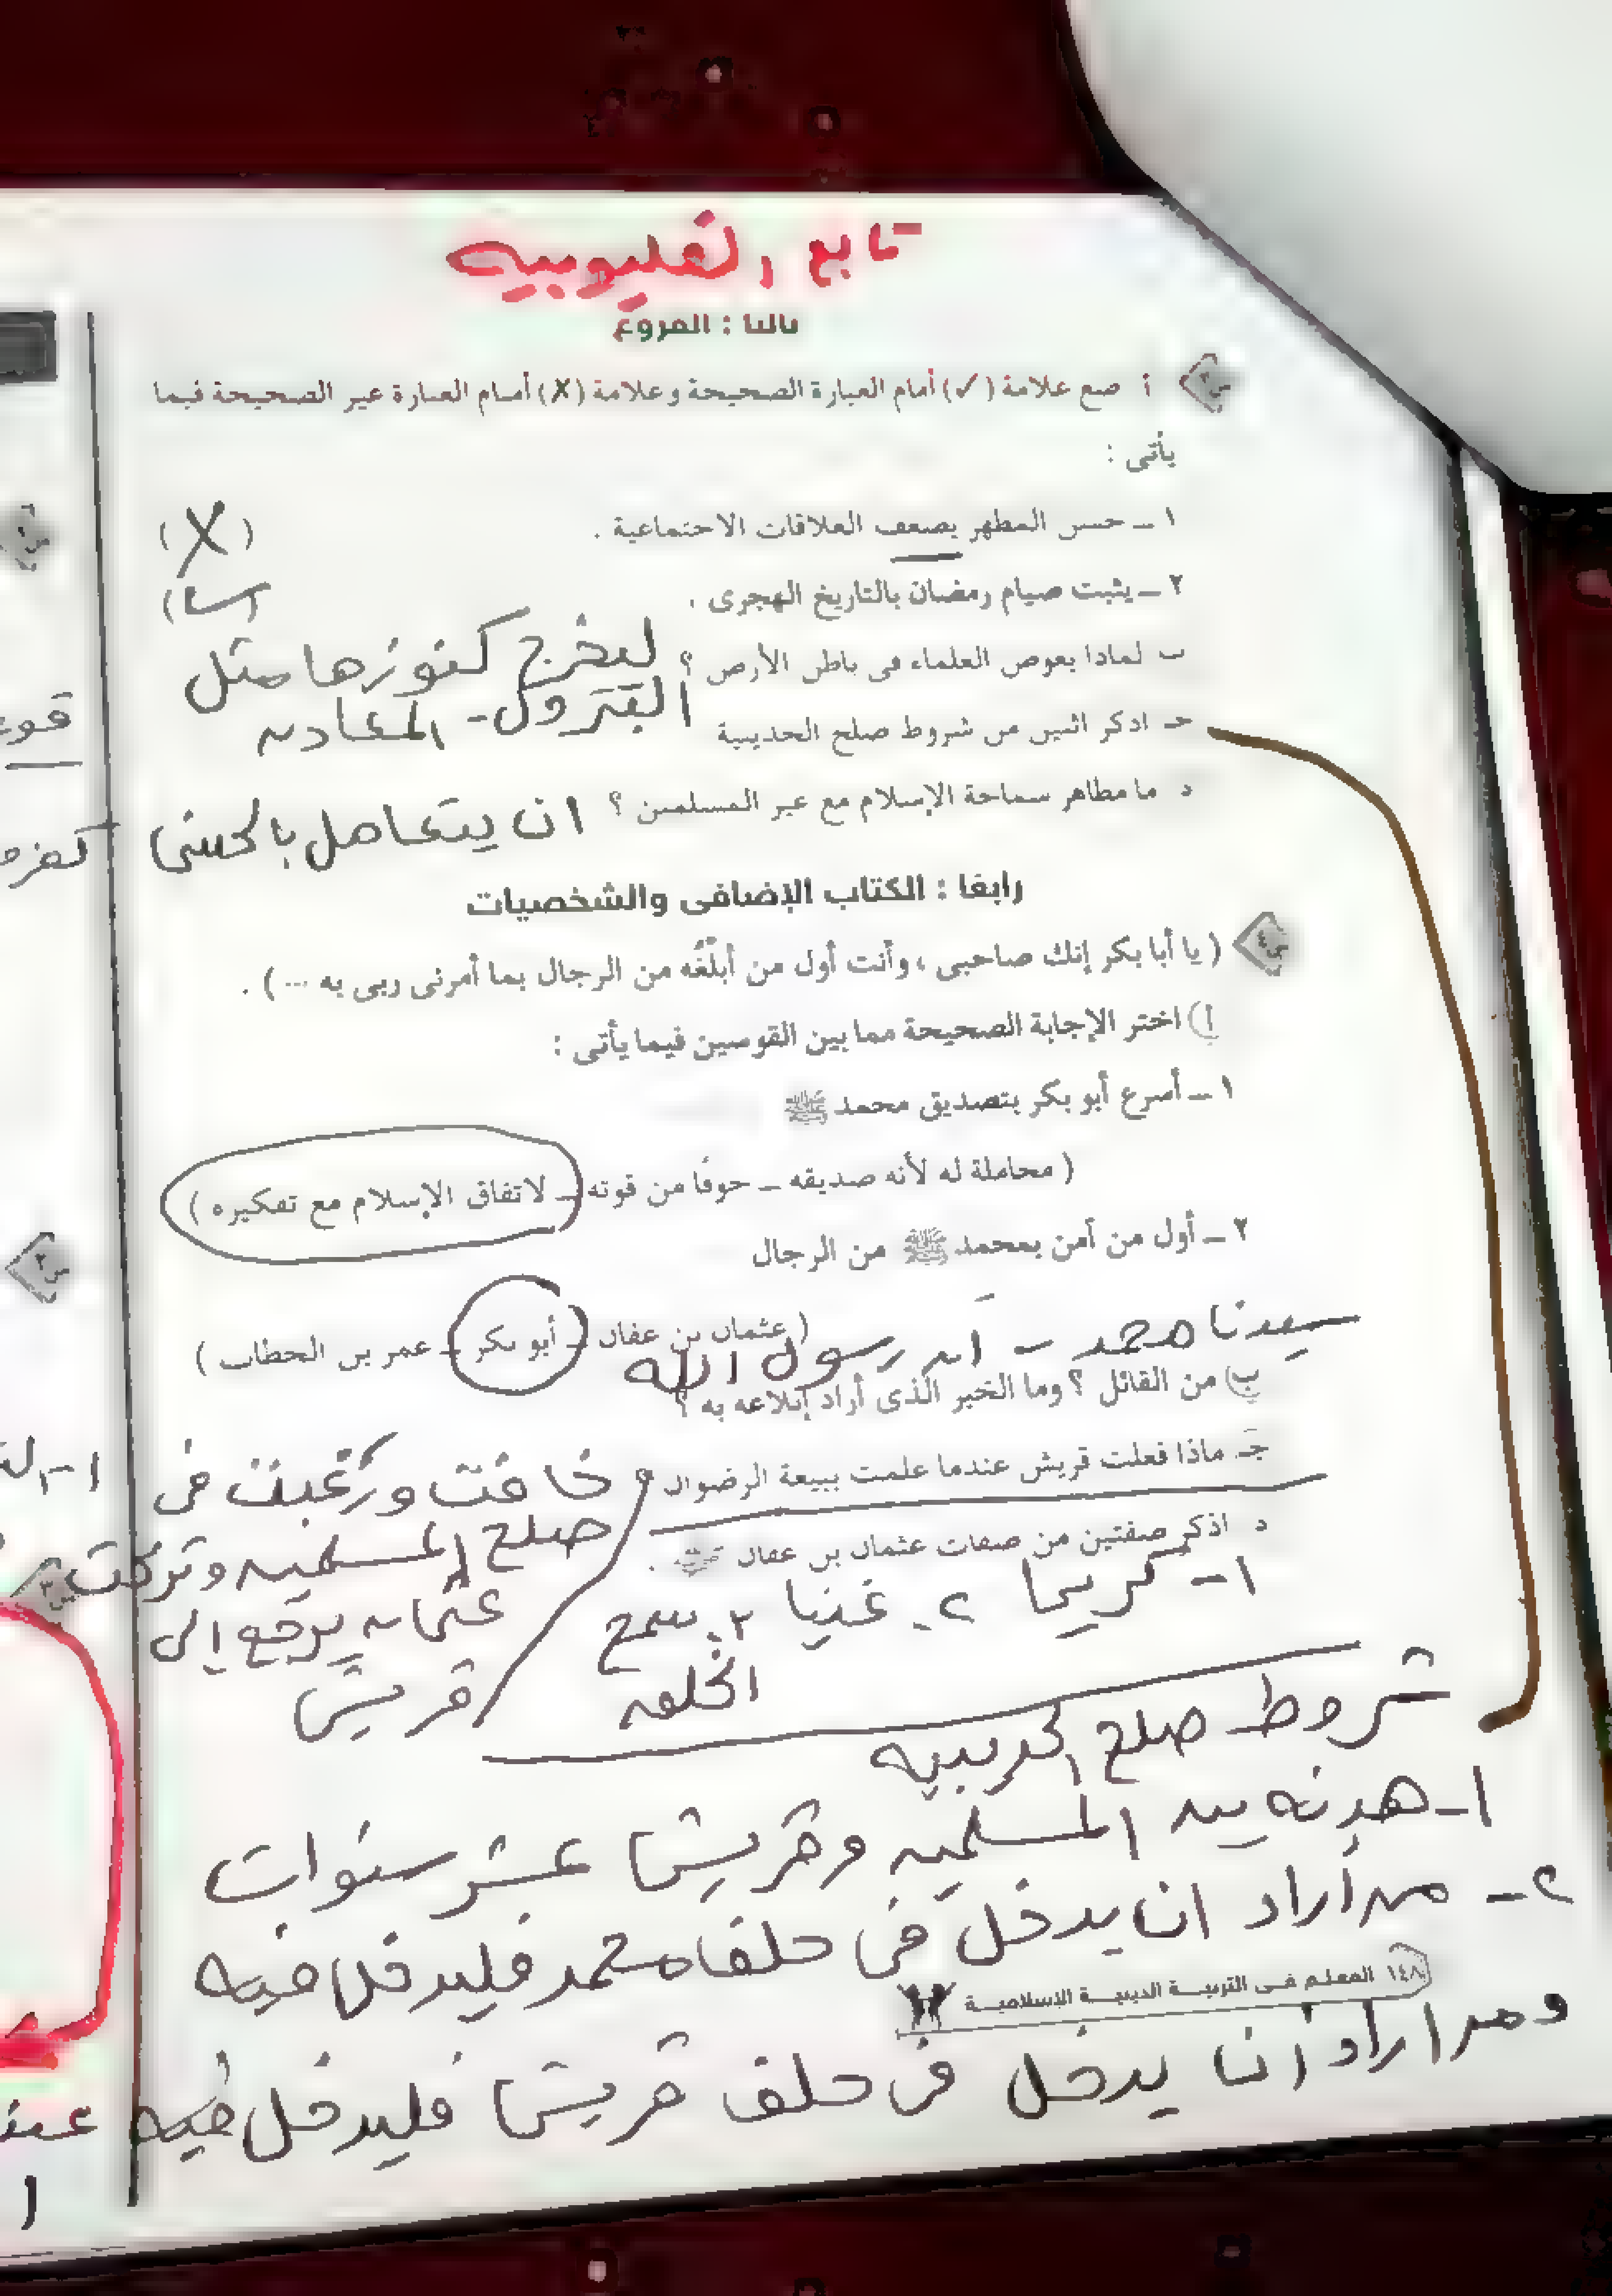 تابع القليوبيه
ثالثا : الفروع
س٣
أ ضع علامة (✓) أمام العبارة الصحيحة وعلامة (✗) أمام العبارة غير الصحيحة فيما
يأتى :
١ ــ حسن المظهر يضعف العلاقات الاجتماعية . (X)
٢ ــ يثبت صيام رمضان بالتاريخ الهجرى . (✓)
ب لماذا يغوص العلماء فى باطن الأرض ؟ ليخرج كنوزها مثل
البترول - المعادن
جـ اذكر اثنين من شروط صلح الحديبية
د ما مظاهر سماحة الإسلام مع غير المسلمين ؟ ان يتعامل بالحسنى
رابعًا : الكتاب الإضافى والشخصيات
س٤
( يا أبا بكر إنك صاحبى ، وأنت أول من أبلّغُه من الرجال بما أمرنى ربى به ... ) .
أ) اختر الإجابة الصحيحة مما بين القوسين فيما يأتى :
١ ــ أسرع أبو بكر بتصديق محمد ﷺ
( مجاملة له لأنه صديقه ــ خوفًا من قوته ــ لاتفاق الإسلام مع تفكيره )
٢ ــ أول من آمن بمحمد ﷺ من الرجال
( عثمان بن عفان ــ أبو بكر ــ عمر بن الخطاب )
سيدنا محمد - انه رسول الله
ب) من القائل ؟ وما الخبر الذى أراد إبلاغه به ؟
جـ ماذا فعلت قريش عندما علمت ببيعة الرضوان ؟ خافت ورغبت فى
صلح المسلمين وتركت
عثمان يرجع إلى
قريش
د اذكر صفتين من صفات عثمان بن عفان .
١- كريما ٢- غنيا ٣- سمح
الخلق
شروط صلح الحديبيه
١- هدنه بين المسلمين وقريش عشر سنوات
٢- من أراد ان يدخل فى حلف محمد فليدخل فيه
١٤٨ المعلم فـى التربيـة الدينيـة الإسلاميـة
ومن اراد أن يدخل فى حلف قريش فليدخل فيه